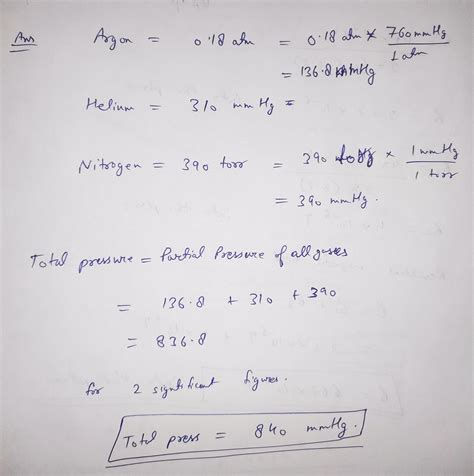 Ans Argon = 0.18 atm = 0.18 atm × 760 mmHg / 1 atm
= 136.8 mmHg
Helium = 310 mmHg =
Nitrogen = 390 torr = 390 torr × 1 mmHg / 1 torr
= 390 mmHg.
Total pressure = Partial Pressure of all gases
= 136.8 + 310 + 390
= 836.8
for 2 significant figures.
Total press = 840 mmHg.